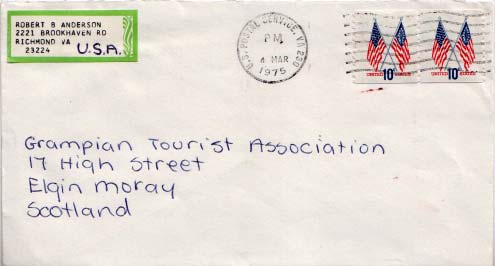 ROBERT B ANDERSON
2221 BROOKHAVEN RD
RICHMOND VA
23224
U.S.A.
U.S. POSTAL SERVICE, VA 230
PM
4 MAR
1975
UNITED STATES
10c
UNITED STATES
10c
Grampian Tourist Association
17 High Street
Elgin moray
Scotland